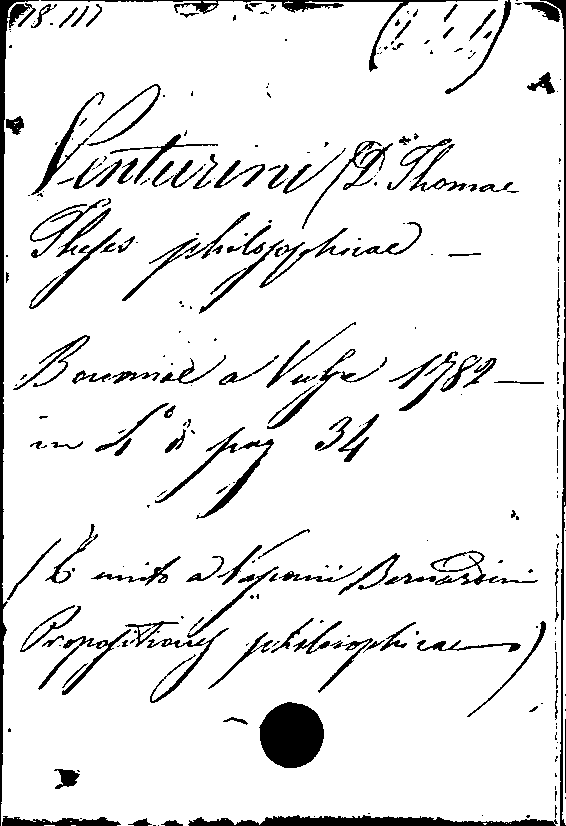 18.117
Venturini (D. Thomae
Theses philosophicae —
Bononiae a Vulpe 1782 —
in 4° di pag 34
(È unito a Vaponi Bernardini
Propositiones philosophicae)